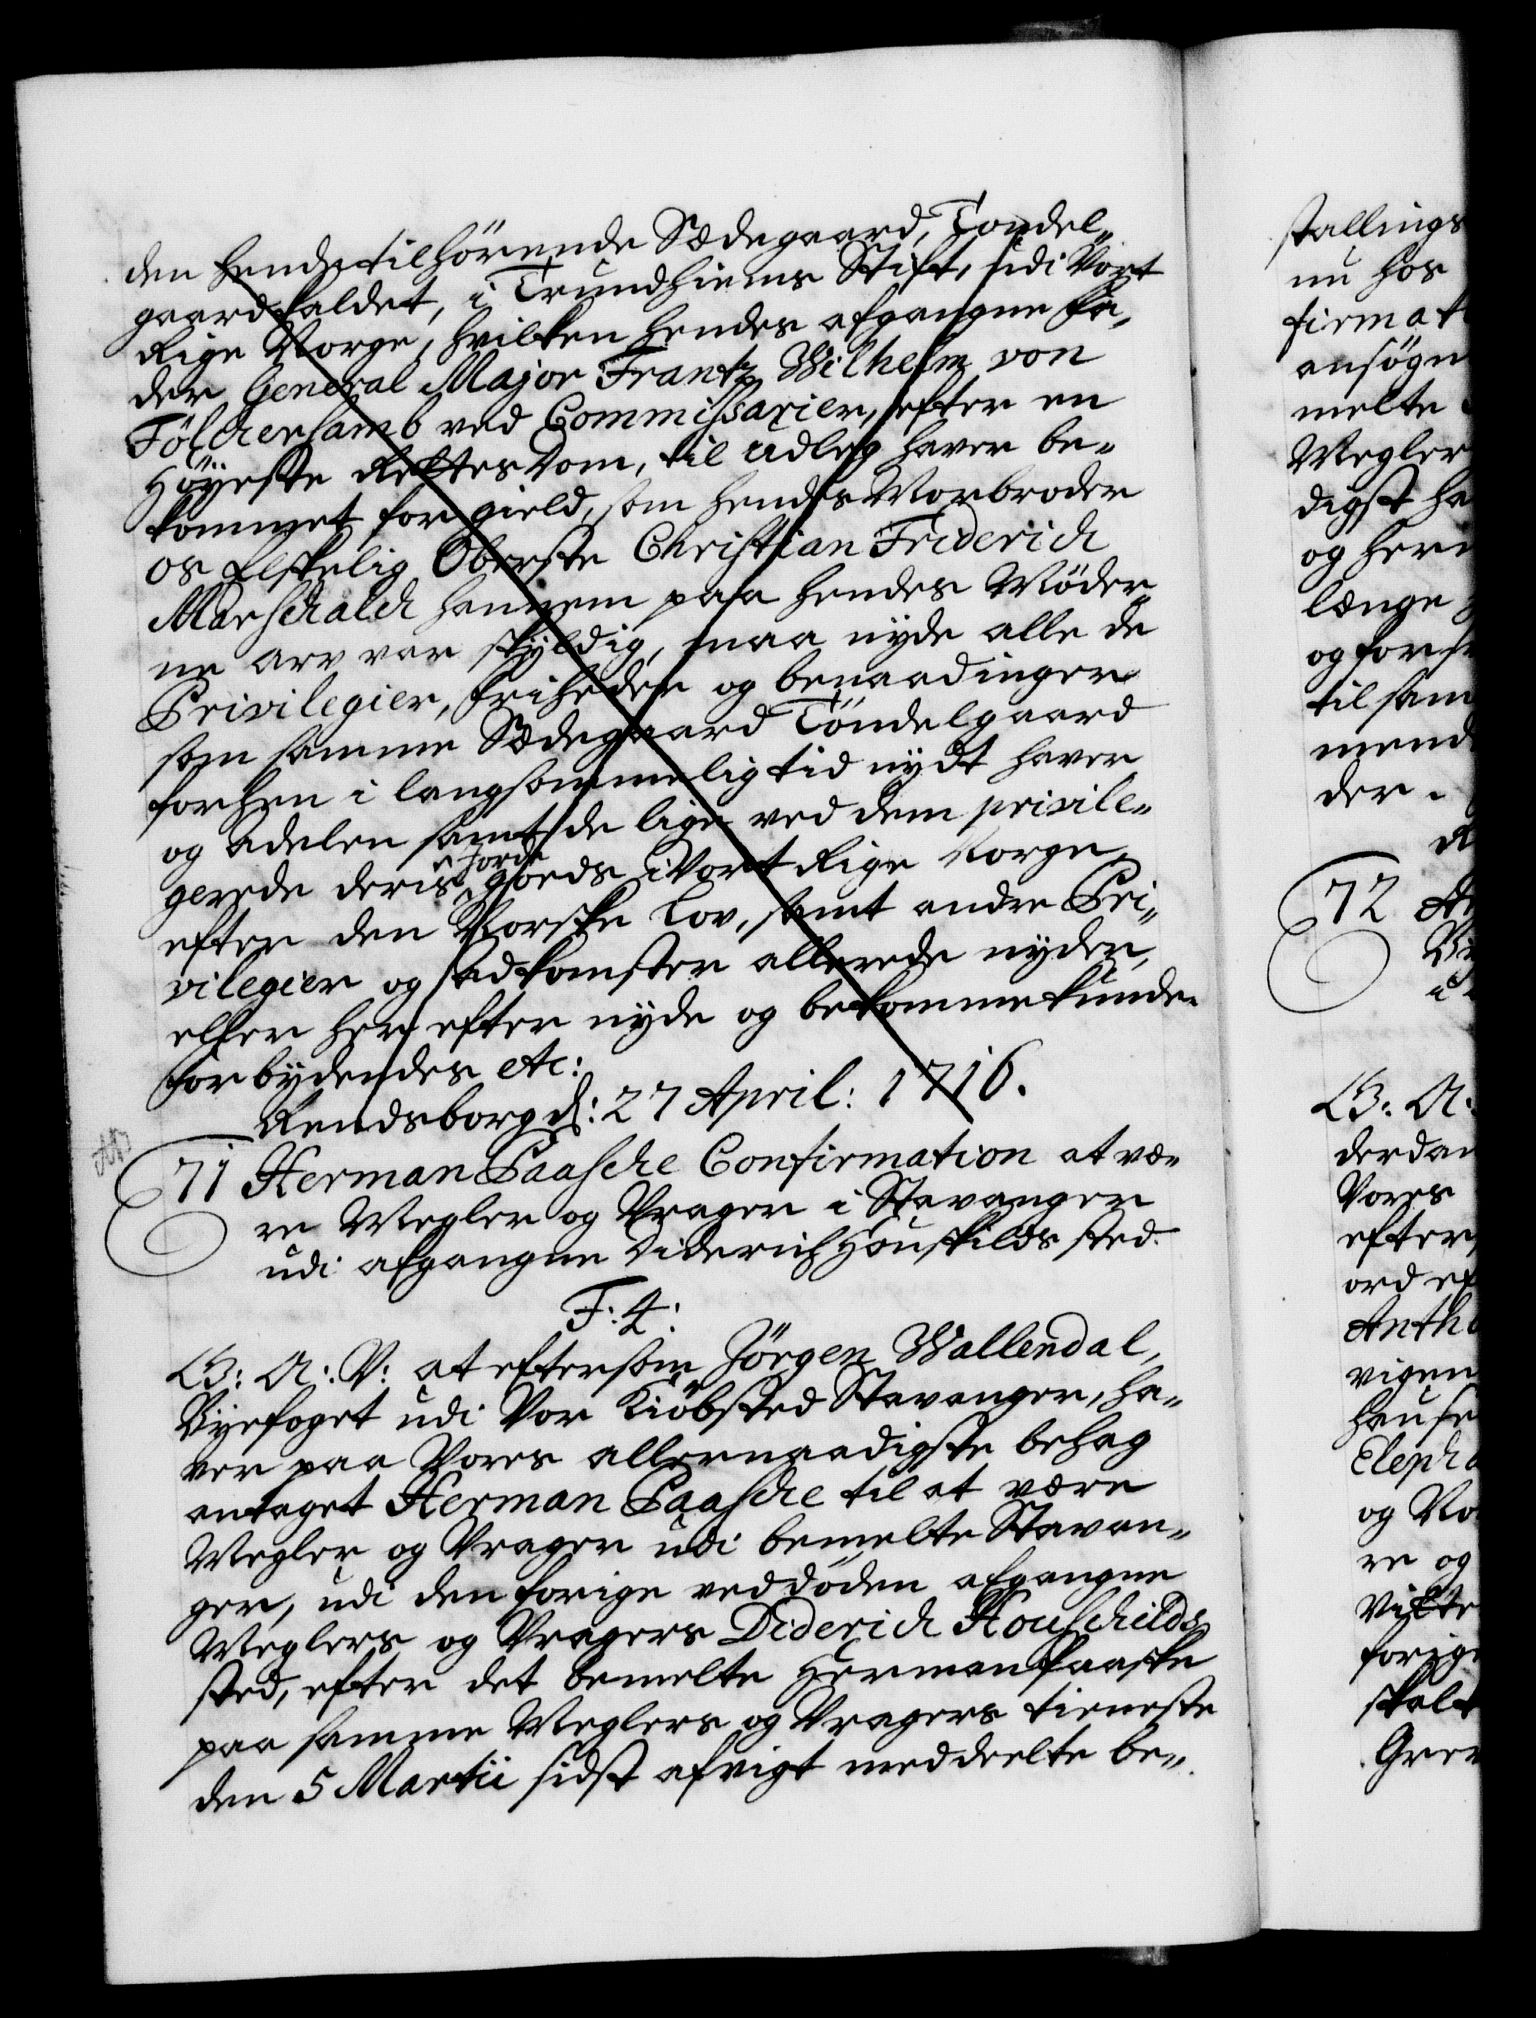 den hendis tilhörende Sædegaard, Tondel„
gaard kaldet, i Trundhiems Stift, udi Vort
Rige Norge, hvilken hendes afgangne Fa„
der General Major Frantz Wilhelm von
Fölckersamb ved Commissarier, efter en
Höyeste Rettes Dom, til Udleg haver be„
kommet for gield, som hendis Morbroder
os Elskelig Oberste Christian Friderich
Marschalch hannem paa hendes Möder„
ne arv var skyldig, maa nyde alle de
Privilegier, Friheder og benaadinger
som samme Sædegaard Töndelgaard
forhen i langsommelig tid nydt haver
og Adelen samt de lige ved dem privile„
gerede deris Jorde goeds i Vort Rige Norge,
efter den Norske Lov, samt andre Pri„
vilegier og adkomster allerede nyder,
eller her efter nyde og bekomme kunde.
Forbydendes etc:
Rendsborg d: 27 April: 1716.
71 Herman Paasche Confirmation at væ„
re Megler og Vrager i Stavanger
udi afgangne Diderich Houskilds sted.
F: 4:
G: A: V: at eftersom Jörgen Wallendal,
Byefoget udi Vor Kiöbsted Stavanger, ha„
ver paa Vores allernaadigste behag
antaget Herman Paasche til at være
Megler og Vrager udi bemelte Stavan„
ger, udi den forige ved döden afgangne
Meglers og Vragers Diderich Houschilds
sted, efter det bemelte Herman Paaske
paa samme Meglers og Vragers tieneste
den 5 Martii sidst afvigt meddeelte be„
stallings
nu hos
firmat
ansögn
melte
Megler
digst ha
og her
længe
og for
til sam
mend
der.
72
G: A:
derdan
Vores
efter
ord ef
Antho
vigen
hause
Elepha
og No
re og
Vikte
forige
skal
Grev